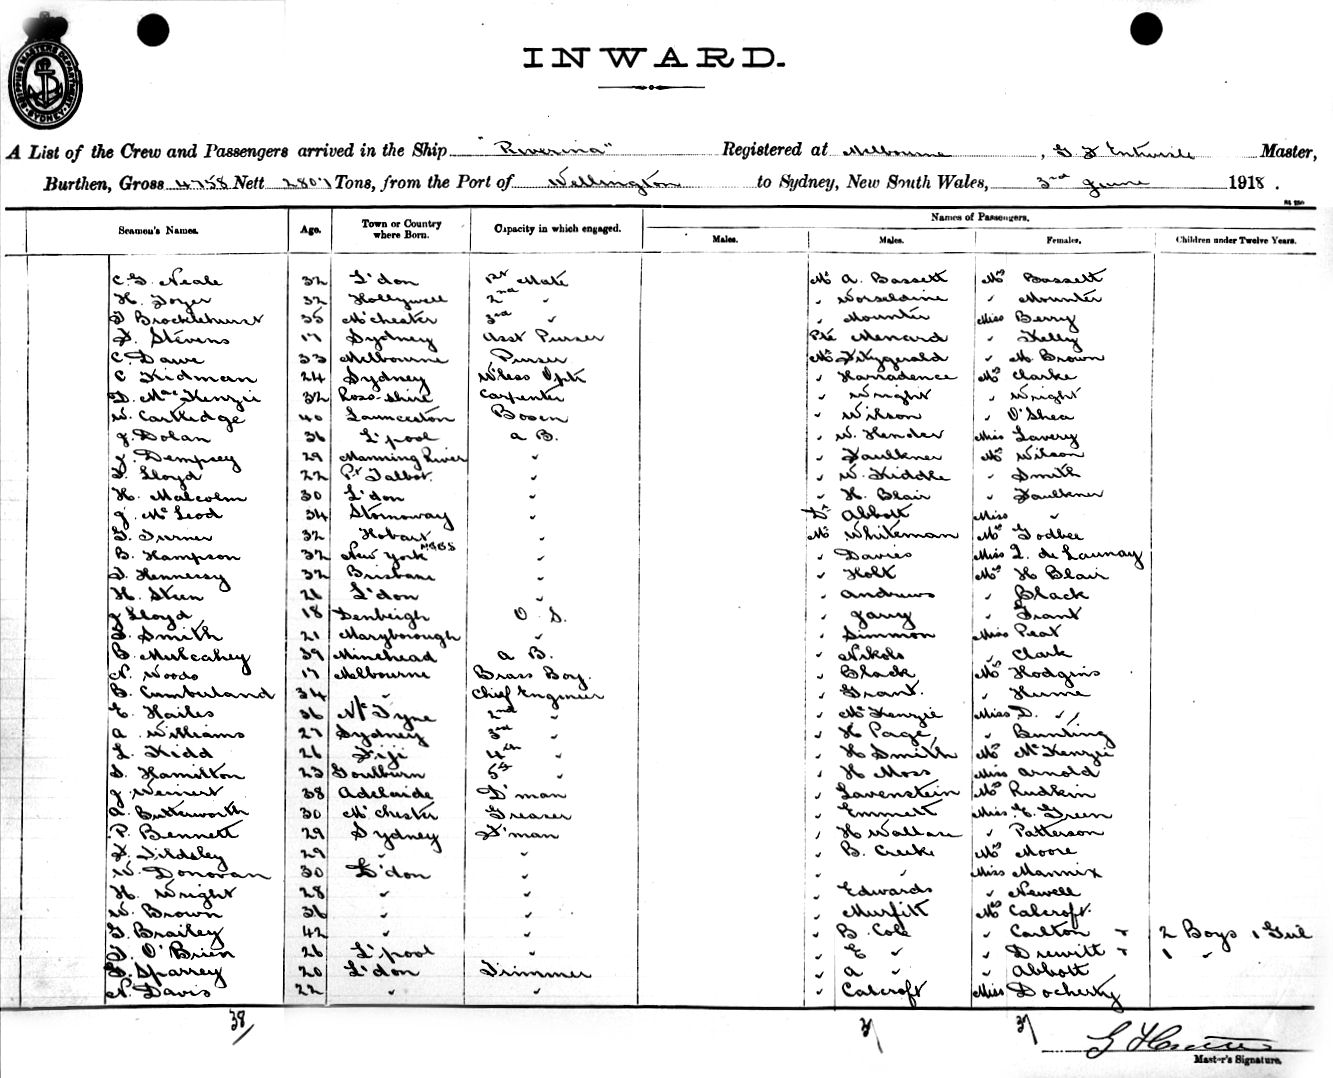 SHIPPING MASTERS DEPARTMENT SYDNEY
INWARD.
A List of the Crew and Passengers arrived in the Ship "Riverina" Registered at Melbourne, Master,
Burthen, Gross 4758 Nett 2807 Tons, from the Port of Wellington to Sydney, New South Wales, 3rd June 1918.
Names of Passengers.
Seamen's Names. Age. Town or Country where Born. Capacity in which engaged. Males. Males. Females. Children under Twelve Years.
C. G. Neale 32 L'don 1st Mate Mr A. Bassett Mrs Bassett
H. Toyer 32 Hollywell 2nd " " Worseldine " Mounter
Brocklehurst 35 M'chester 3rd " " Mounter Miss Berry
F. Stevens 17 Sydney Asst Purser Pte Menard " Kelly
C. Dawe 33 Melbourne Purser Mr Fitzgerald " M. Brown
C Kidman 24 Sydney W'less Optr " Harradence Mrs Clarke
D. MacKenzie 32 Ross-shire Carpenter " Wright " Wright
W. Cartledge 40 Launceston Bosen " Wilson " O'Shea
J. Dolan 36 L'pool A B. " W. Hender Miss Lavery
J. Dempsey 29 Manning River " " Faulkner Mrs Wilson
Lloyd 22 Pt Talbot. " " W. Kiddle " Smith
H. Malcolm 30 L'don " " H. Blair " Faulkner
J. McLeod 34 Stornoway " Dr Abbott Miss "
G. Turner 32 Hobart " Mr Whiteman Mrs Godbee
B. Hampson 32 New York " " Davies Miss L. de Launay
T. Hennessy 32 Brisbane " " Holt Mrs H Blair
H. Steen 26 L'don " " Andrews " Black
J Lloyd 18 Denbeigh O. S. " Garry " Grant
Smith 21 Maryborough " " Simmon Miss Peat
B. Mulcahey 39 Minehead A B. " Nikols " Clark
N. Woods 17 Melbourne Brass Boy. " Black Mrs Hodgins
B. Cumberland 34 " Chief Engineer " Grant. " Hume
E. Hailes 36 N'c Tyne 2nd " " McKenzie Miss D. "
A Williams 27 Sydney 3rd " " H Page " Bunting
L. Kidd 26 Fiji 4th " " H Smith Mrs McKenzie
Hamilton 23 Goulburn 5th " " H Moss Miss Arnold
J. Weinert 38 Adelaide D'man " Lavenstein Mrs Rudkin
A. Butterworth 30 M'chester Greaser " Emmett Miss E. Green
P. Bennett 29 Sydney F'man " H Wallace " Patterson
F. Tildsley 29 " " " B. Creeke Mrs Moore
W. Donovan 30 L'don " " " Miss Mannix
H. Wright 28 " " " Edwards " Newell
W. Brown 36 " " " Murfitt Mrs Calcroft.
G. Brailey 42 " " " B. Cole " Carlton " 2 Boys 1 Girl
O'Brien 26 L'pool " " E " " Drewitt " 1 "
G. Sparrey 20 L'don Trimmer " A " " Abbott
N. Davis 22 " " " Calcroft Miss Docherty
38/ 37 37
Master's Signature.